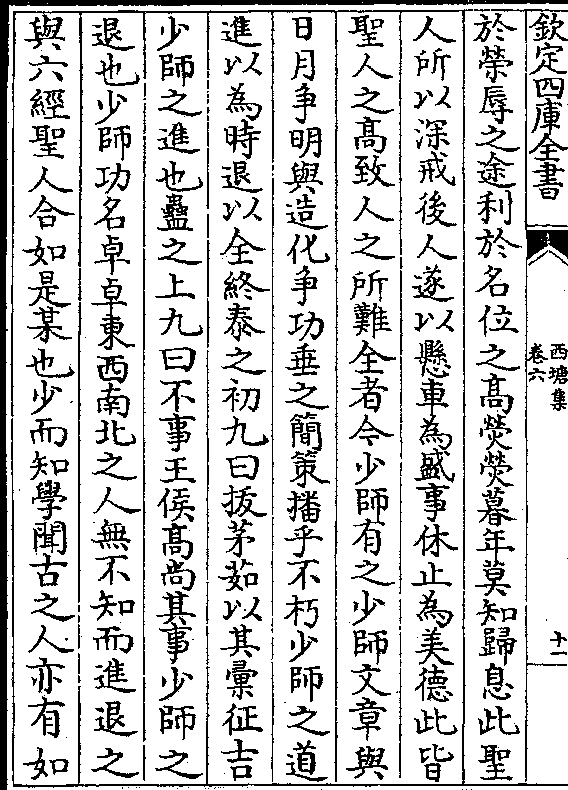 欽定四庫全書
西塘集
卷六
十一
於榮辱之途利於名位之高熒熒暮年莫知歸息此聖
人所以深戒後人遂以懸車為盛事休止為美德此皆
聖人之高致人之所難全者今少師有之少師文章與
日月争明與造化争功垂之簡策播乎不朽少師之道
進以為時退以全終泰之初九曰拔茅茹以其彙征吉
少師之進也蠱之上九曰不事王侯高尚其事少師之
退也少師功名卓卓東西南北之人無不知而進退之
與六經聖人合如是某也少而知學聞古之人亦有如